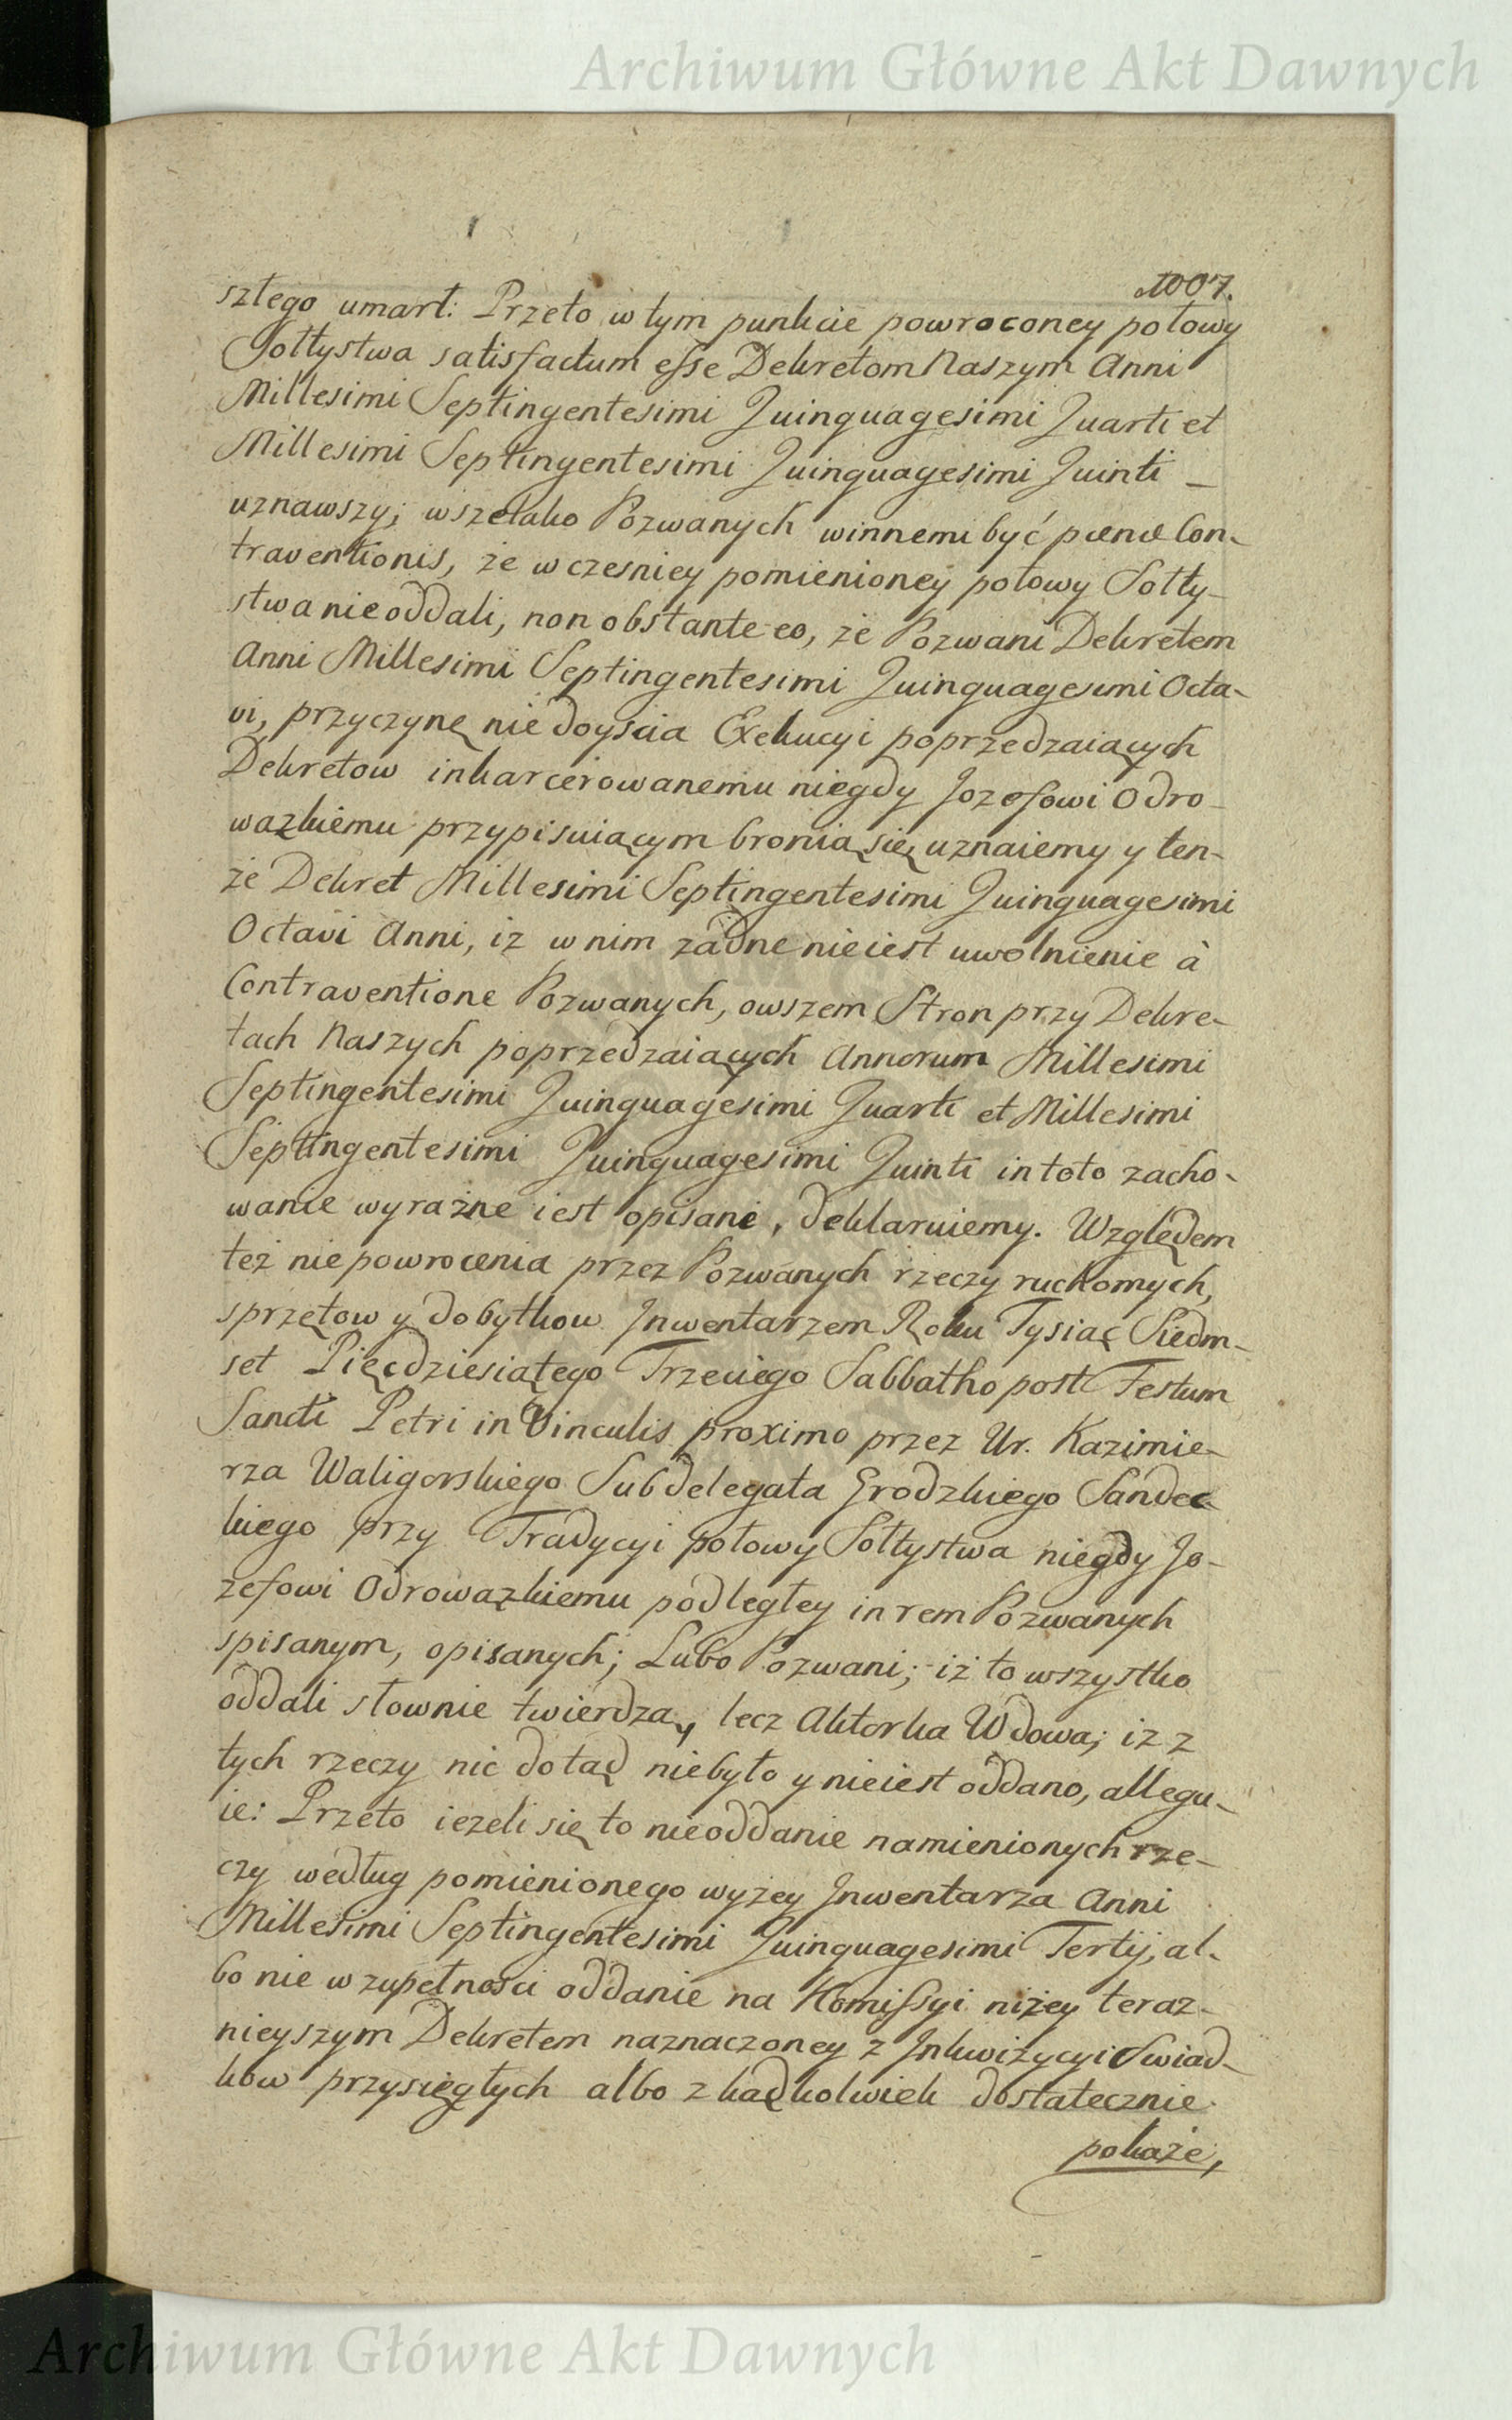 Archiwum Główne Akt Dawnych
1007.
szłego umarł: Przeto w tym punkcie powroconey połowy
Sołtystwa satisfactum eſse Dekretom Naszym Anni
Millesimi Septingentesimi Quinquagesimi Quarti et
Millesimi Septingentesimi Quinquagesimi Quinti _
uznawszy; wszelako Pozwanych winnemi być pœnæ Con-
traventionis, że wczesniey pomienioney połowy Sołty-
stwa nieoddali, non obstante eo, że Pozwani Dekretem
Anni Millesimi Septingentesimi Quinquagesimi Octa-
vi, przyczynę nie doyscia Exekucyi poprzedzaiących
Dekretow inkarcerowanemu niegdy Jozefowi Odro-
wązkiemu przypisuiącym bronią się, uznaiemy y ten-
że Dekret Millesimi Septingentesimi Quinquagesimi
Octavi Anni, iz w nim żadne nieiest uwolnienie à
Contraventione Pozwanych, owszem Stron przy Dekre-
tach Naszych poprzedzaiących Annorum Millesimi
Septingentesimi Quinquagesimi Quarti et Millesimi
Septingentesimi Quinquagesimi Quinti in toto zacho-
wanie wyraźne iest opisane, deklaruiemy. Względem
też niepowrocenia przez Pozwanych rzeczy ruchomych,
sprzętow y dobytkow Inwentarzem Roku Tysiąc Siedm-
set Pięcdziesiątego Trzeciego Sabbatho post Festum
Sancti Petri in Vinculis proximo przez Ur. Kazimie-
rza Waligorskiego Subdelegata Grodzkiego Sandec-
kiego przy Tradycyi połowy Sołtystwa niegdy Jo-
zefowi Odrowązkiemu podległey in rem Pozwanych
spisanym, opisanych; Lubo Pozwani; iż to wszystko
oddali słownie twierdzą, lecz Aktorka Wdowa; iz z
tych rzeczy nic dotąd niebyło y nieiest oddano, allegu-
ie: Przeto ieżeli się to nieoddanie namienionych rze-
czy według pomienionego wyżey Inwentarza Anni
Millesimi Septingentesimi Quinquagesimi Tertij, al-
bo nie w zupełnosci oddanie na Komiſsyi niżey teraz-
nieyszym Dekretem naznaczoney z Inkwizycyi Swiad-
kow przysięgłych albo zkądkolwiek dostatecznie
pokaże,
Archiwum Główne Akt Dawnych